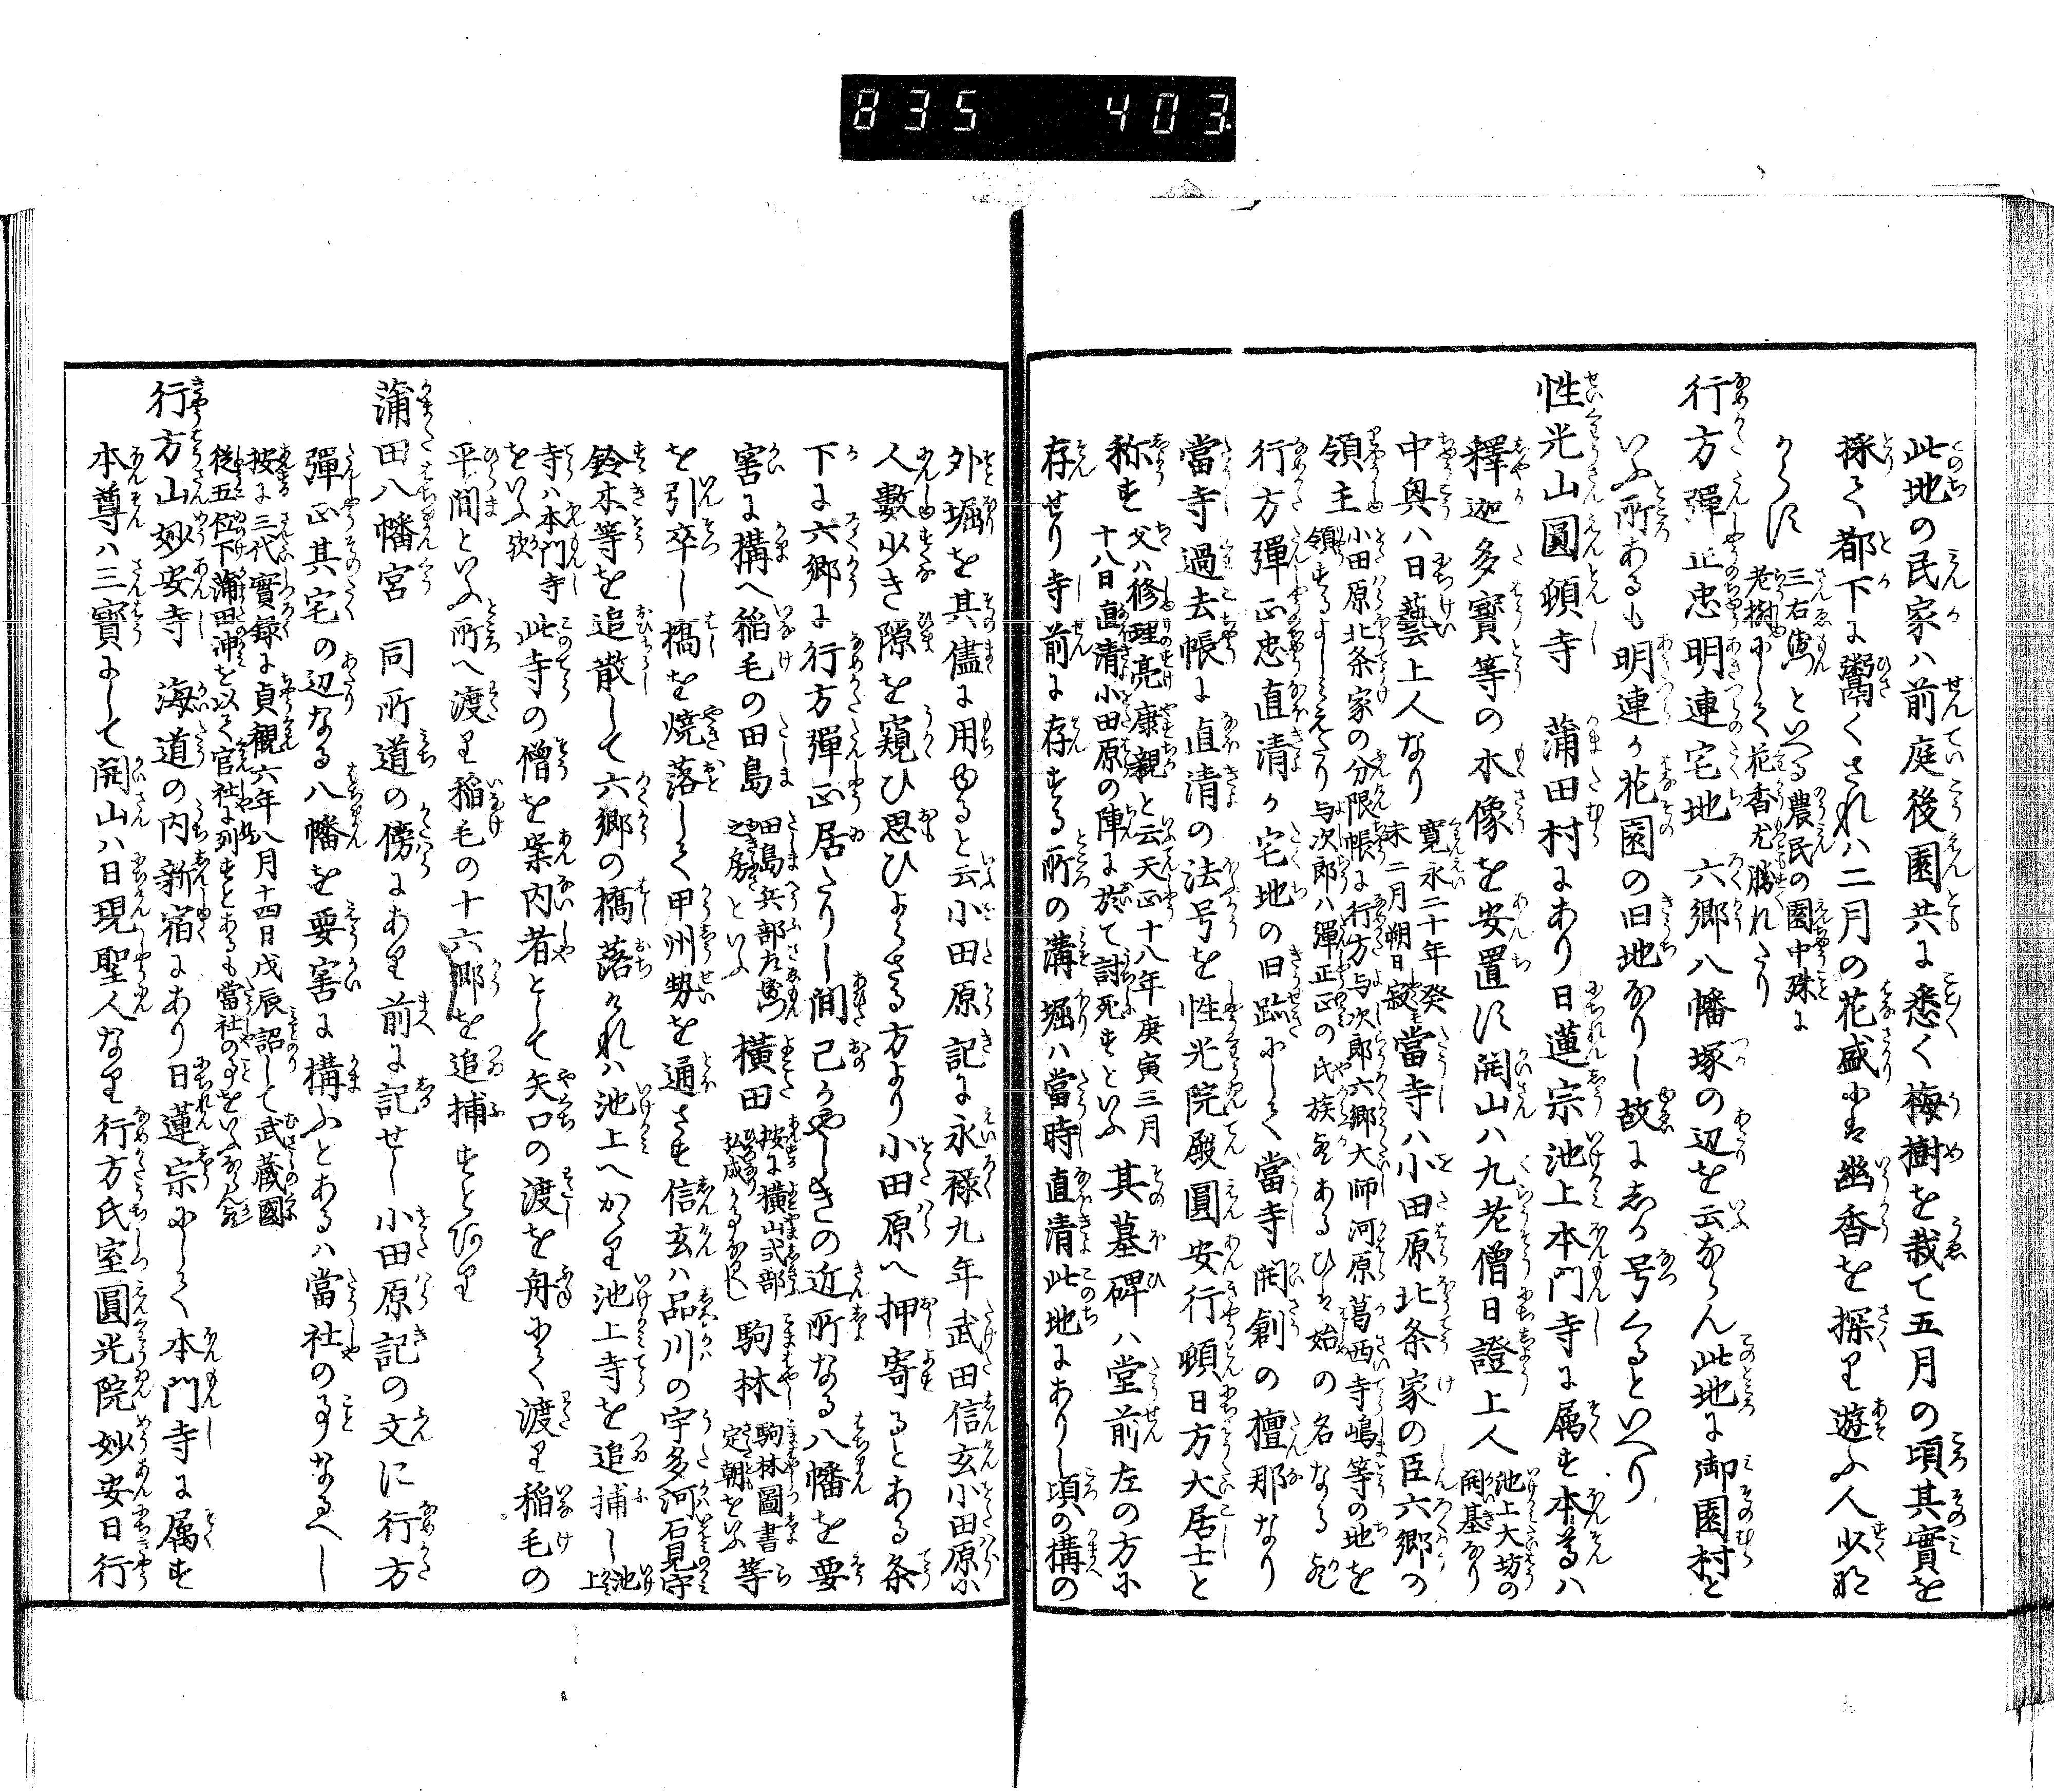 835 403
此地の民家ハ前庭後園共に悉く梅樹を栽て五月の頃其實を
採て都下に鬻くされハ二月の花盛にハ幽香を探り遊ふ人少な
からす 三右衛門といへる農民の園中殊に
老樹にして花香尤勝れたり
行方彈正忠明連宅地 六郷八幡塚の辺を云ならん此地に御園村と
いふ所あるも明連か花園の旧地なりし故にしか号くるといへり
性光山圓頓寺 蒲田村にあり日蓮宗池上本門寺に属す本尊ハ
釋迦多寳等の木像を安置す開山ハ九老僧日證上人 池上大坊の
開基なり
中興ハ日藝上人なり 寛永二十年癸
未二月朔日寂 當寺ハ小田原北条家の臣六郷の
領主 小田原北条家の分限帳に行方与次郎六郷大師河原葛西寺嶋等の地を
領するよしみえたり与次郎ハ彈正の氏族歟あるひハ始の名なる歟
行方彈正忠直清か宅地の旧趾にして當寺開創の檀那なり
當寺過去帳に直清の法号を性光院殿圓安行頓日方大居士と
称す 父ハ修理亮康親と云天正十八年庚寅三月
十八日直清小田原の陣に於て討死すといふ 其墓碑ハ堂前左の方に
存せり寺前に存する所の溝堀ハ當時直清此地にありし頃の構の
外堀を其儘に用ゆると云小田原記に永禄九年武田信玄小田原に
人數少き隙を窺ひ思ひよらさる方より小田原へ押寄るとある条
下に六郷に行方彈正居たりし間己かやしきの近所なる八幡を要
害に構へ稲毛の田島 田島兵部左衛門
之房 といふ 横田 按に横山式部
弘成 かことなるへし 駒林 駒林圖書
定朝 をいふ 等
を引卒し橋を焼落して甲州勢を通さす信玄ハ品川の宇多河石見守
鈴木等を追散して六郷の橋落けれハ池上へかゝり池上寺を追捕し 池上
寺ハ本門寺
をいふ歟 此寺の僧を案内者として矢口の渡を舟にて渡り稲毛の
平間といふ所へ渡り稲毛の十六郷を追捕すとあり
蒲田八幡宮 同所道の傍にあり前に記せし小田原記の文に行方
彈正其宅の辺なる八幡を要害に構ふとあるハ當社の事なるへし
按に三代實録に貞観六年八月十四日戊辰詔して武蔵國
従五位下蒲田神を以て官社に列すとあるも當社の事をいふならん歟
行方山妙安寺 海道の内新宿にあり日蓮宗にして本門寺に属す
本尊ハ三寳にして開山ハ日現聖人なり行方氏室圓光院妙安日行